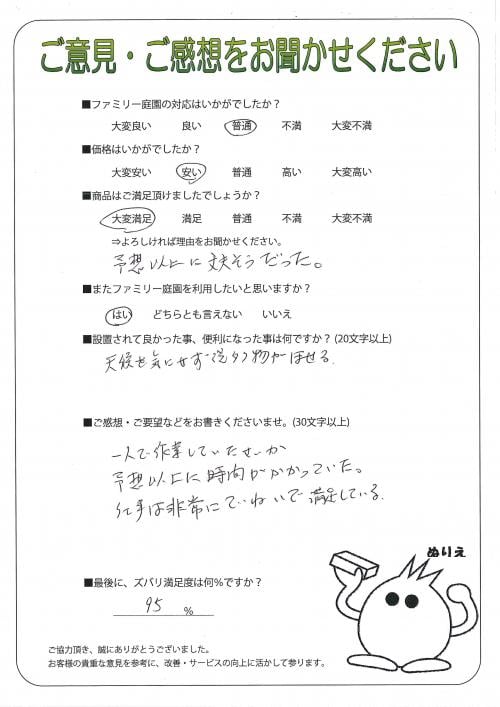 ご意見・ご感想をお聞かせください
■ファミリー庭園の対応はいかがでしたか？
大変良い 良い 普通 不満 大変不満
■価格はいかがでしたか？
大変安い 安い 普通 高い 大変高い
■商品はご満足頂けましたでしょうか？
大変満足 満足 普通 不満 大変不満
⇒よろしければ理由をお聞かせください。
予想以上に丈夫そうだった。
■またファミリー庭園を利用したいと思いますか？
はい どちらとも言えない いいえ
■設置されて良かった事、便利になった事は何ですか？(20文字以上)
天候を気にせず洗タク物がほせる。
■ご感想・ご要望などをお書きくださいませ。(30文字以上)
一人で作業していたせいか
予想以上に時間がかかっていた。
仕事は非常にていねいで満足している。
ぬりえ
■最後に、ズバリ満足度は何％ですか？
95 %
ご協力頂き、誠にありがとうございました。
お客様の貴重な意見を参考に、改善・サービスの向上に活かして参ります。